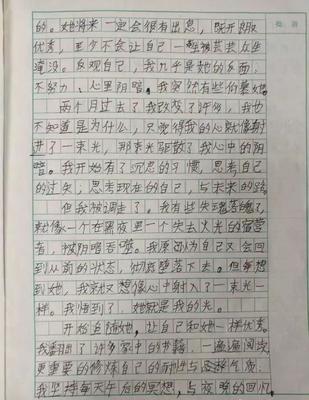 的。她将来一定会很有出息，既开朗
优秀，至少不会让自己一般被芸芸众生
淹没。反观自己，我几乎是她的反面，
不努力、心里阴暗。我突然有些仰慕她。
两个月过去了我改改了许多，我也
不知道是为什么，只觉得我的心就像射
进了一束光，那束光驱散了我心中的阴
暗。我开始有了沉思的习惯，思考自己
的过失；思考现在的自己，与未来的路。
但我被调走了。我有些失魂落魄了，
就像一个在黑夜里一个失去火光的宿营
者，被阴暗吞噬。我原以为自己又会回
到从前的状态，彻底堕落下去。但每想
到她，我就又想像心中射入了一束光一
样。我悟到了，她就是我的光。
开始追随她，让自己和她一样优秀。
我翻出了许多家中的书籍，一遍遍阅读，
更重要的修炼自己的耐性与态格气度，
我坚持每天午后的冥想，与夜晚的回忆，